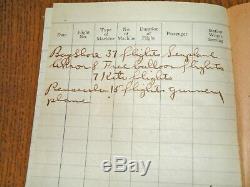 Date Flight No. Type of Machine No. of Machine Duration of Flight Passenger
Bay Shore 37 flights Seaplane
Akron 8 Free Balloon flights
7 Kite flights
Pensacola 15 flights gunnery
plane